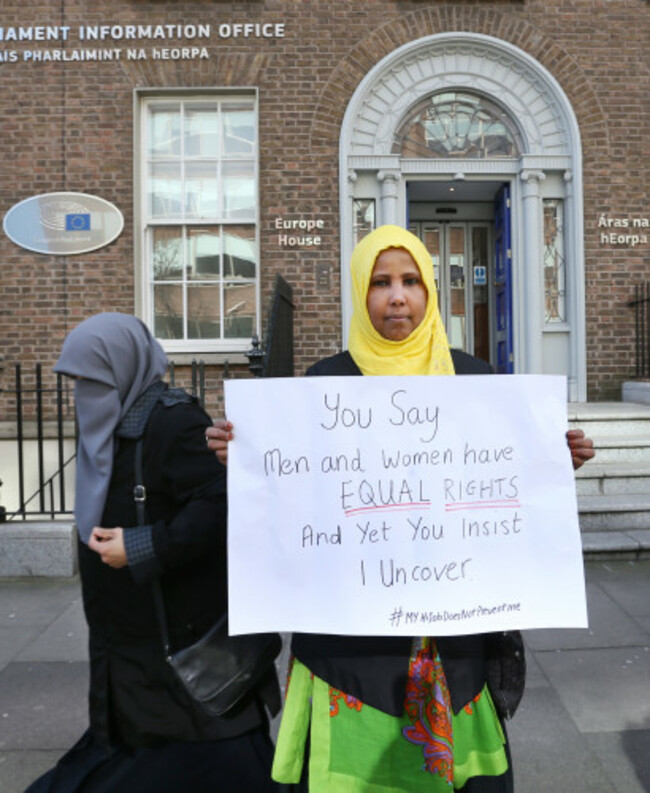 IAMENT INFORMATION OFFICE
AIS PHARLAIMINT NA hEORPA
Europe
House
Áras na
hEorpa
You Say
Men and Women have
EQUAL RIGHTS
And Yet You Insist
I Uncover.
#MyHijabDoesNotPreventme